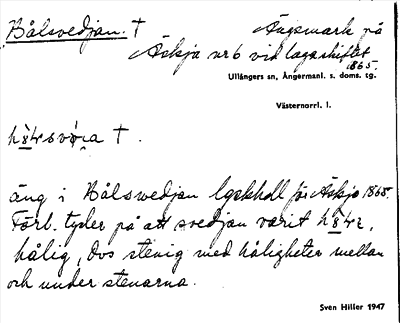 Bålsvedjan. †
Ängsmark på
Äskja nr 6 vid laga skiftet
1865.
Ullångers sn, Ångermanl. s. doms. tg.
Västernorrl. l.
†.
äng i Bålsvedjan lgskholl för Äskja 1865.
Förb. tyder på att svedjan varit
hålig, dvs stenig med håligheter mellan
och under stenarna.
Sven Hiller 1947